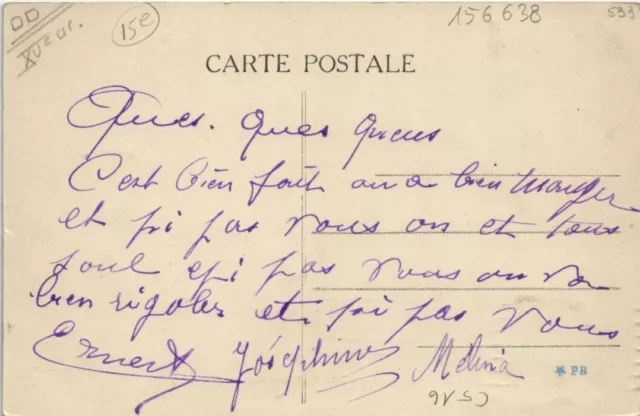 15e
156 638
533
CARTE POSTALE
Ques. Ques
C'est bien fait on a bien manger
et pi pas vous on et tous
soul epi pas vous on va
bien rigoler et pi pas vous
Ernest Joséphine Melina
PB